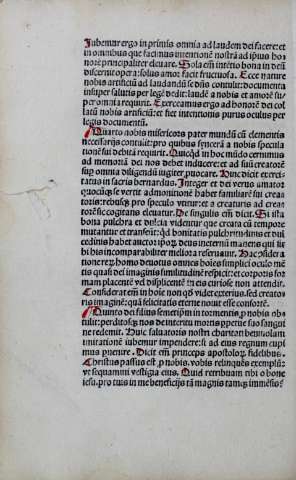 Jubemur ergo in primis omnia ad laudem dei facere: et
in omnibus que facimus intentionē nostrā ad ipsuȝ ho
norē principaliter eleuare. Sola em̄ intētio bona in deū
discernit opera: solus amor facit fructuosa. Ecce nature
nobis artificiū ad laudandū se dn̄s contulit: documenta
insuper salutis per legē dedit: laudē a nobis et amorē su
per omnia requirit. Exerceamus ergo ad honorē dei col
latū nobis artificiū: et fiet intentionis purus oculus per
legis documentū.
Quarto nobis misericors pater mundū cū elementis
necessarijs contulit: pro quibus syncerā a nobis specula
tionē sui debitā requirit. Quicq̄d in hoc mūdo cernimus
ad memoriā dei nos debet inducere: et ad sui creatorē
super omnia diligendū iugiter, puocare. Nuc dicit exerci
tatus in sacris bernardus. Integer et dei verus amator
quocūq̄ se vertit admonitionē habet familiarē sui crea
toris: rebusq̄ pro speculo vtitur: et a creaturis ad crea
torē se cogitans eleuatur. De singulis em̄ dicit. Si ista
bona pulchra et dulcia videntur que creata cū tempore
mutantur et transeūt: qd̄ bonitatis pulchritudinis et dul
cedinis habet auctor ipoȝ deus ineternū manens qui sui
bi his incomparabiliter meliora reseruat. Hac ↄsidera
tione rerū homo deuotus omnes hoies simplici oculo mē
tis quasi dei imaginis similitudinē respicit: et corporis for
mam placentē vel displicentē in eis curiose non attendit.
Considerat em̄ in hoie non qd̄ videt exterius, sed creato
ris imaginē: quā felicitatis eterne nouit esse consortē.
Quinto dei filius semetip̄m in tormentis p nobis ob
tulit: perditosq̄ nos de interitu mortis pprcio suo sangui
ne redemit. Huic saluatoris nostri charitati beniuolam
imitationē iubemur impendere: si ad eius regnum cupi
mus puenire. Dicit em̄ princeps apostoloȝ fidelibus.
Christus passus est p nobis, vobis relinquēs exemplū:
vt sequamini vestigia eius. Quid retribuam tibi o bone
iesu, pro tuis in me beneficijs tā magnis tamq̄ immēsis?